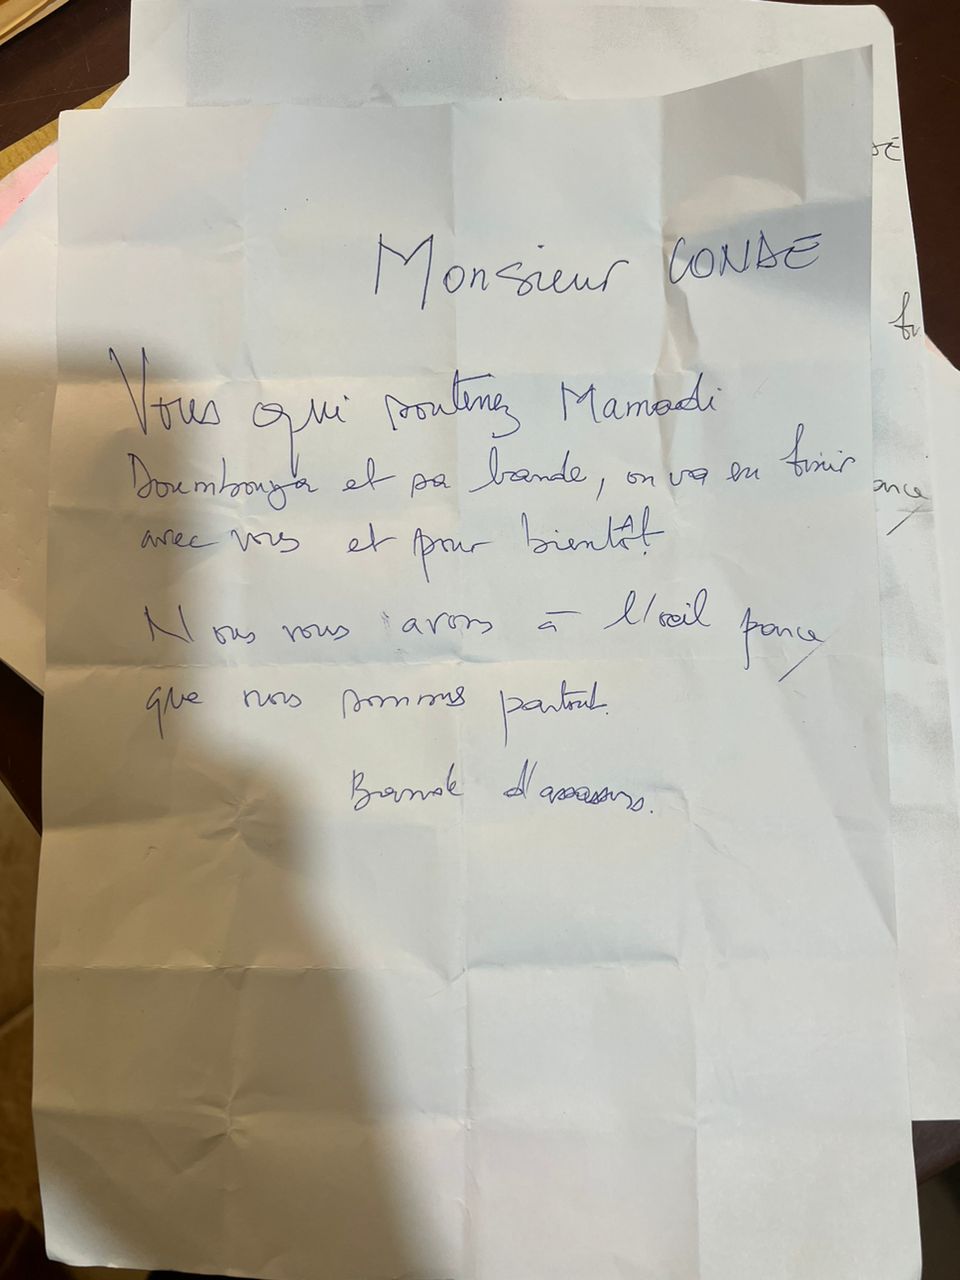 Monsieur CONDE
Vous qui soutenez Mamadi
Doumbouya et sa bande, on va en finir
avec vous et pour bientôt.
Nous vous avons à l'œil parce
que nous sommes partout.
Bande d'assassins.